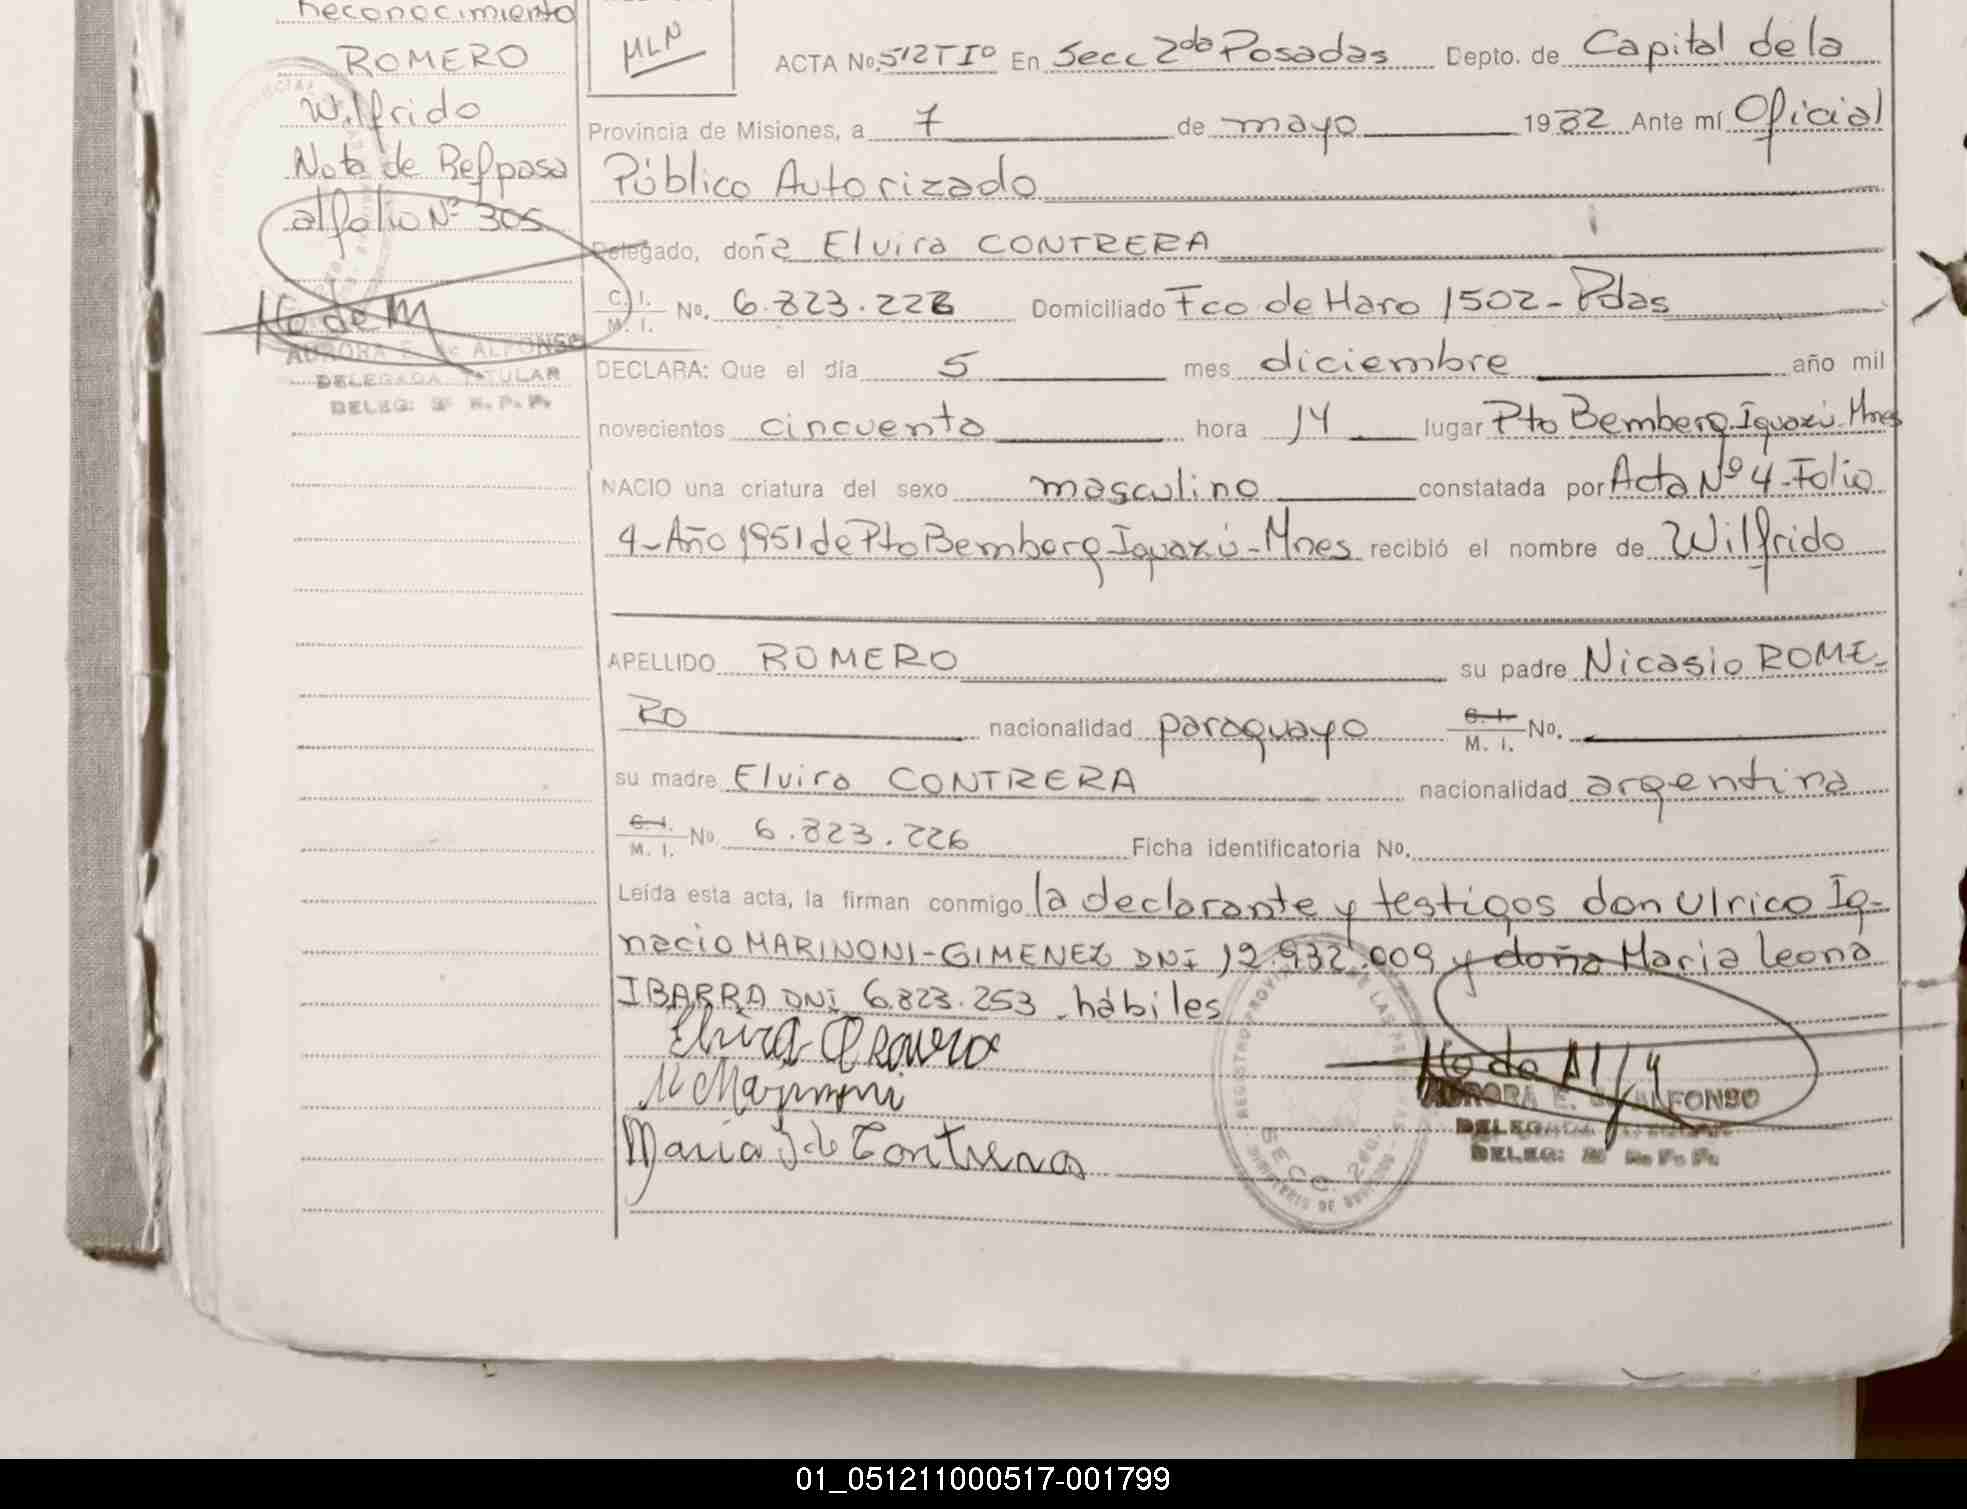 Reconocimiento
ROMERO
Wilfrido
Nota de Ref. pasa
al folio Nº 305
AURORA E. de ALFONSO
DELEGADA TITULAR
DELEG: 2ª R. P. P.
MLN
ACTA No. 512 TIº En Secc 2da Posadas Depto. de Capital de la
Provincia de Misiones, a 7 de mayo 1982 Ante mí Oficial
Público Autorizado
Delegado, doña Elvira CONTRERA
C. I. M. I. No. 6.823.226 Domiciliado Fco de Haro 1502 - Pdas
DECLARA: Que el día 5 mes diciembre año mil
novecientos cincuenta hora 14 lugar Pto Bemberg. Iguazú. Mnes
NACIO una criatura del sexo masculino constatada por Acta Nº 4 - Folio
4 - Año 1951 de Pto Bemberg Iguazú - Mnes recibió el nombre de Wilfrido
APELLIDO ROMERO su padre Nicasio ROME-
RO nacionalidad paraguayo C. I. M. I. No.
su madre Elvira CONTRERA nacionalidad argentina
C. I. M. I. No. 6.823.226 Ficha identificatoria No.
Leída esta acta, la firman conmigo la declarante y testigos don Ulrico Ig-
nacio MARINONI-GIMENEZ DNI 12.932.009 y doña Maria Leona
IBARRA DNI 6.823.253 - hábiles
Maria I de Contrera
REGISTRO PROVINCIAL DE LAS PERSONAS
SECC. 2da.
AURORA E. de ALFONSO
DELEGADA TITULAR
DELEG: 2ª R. P. P.
01_051211000517-001799